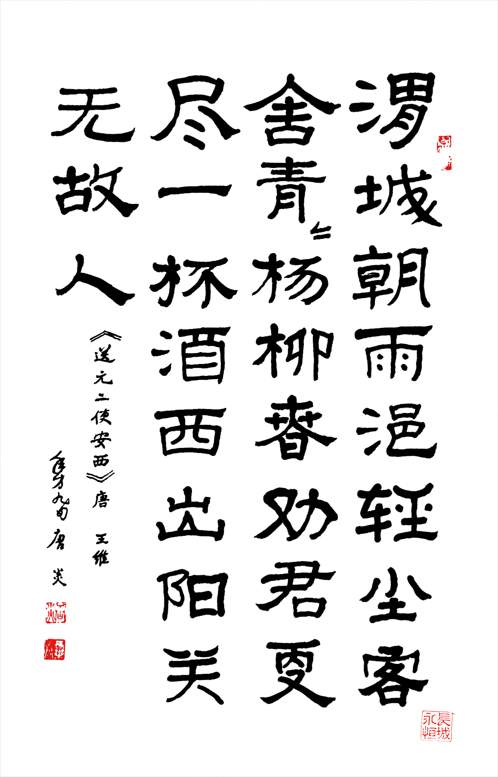 渭城朝雨浥轻尘客
舍青〻杨柳春劝君更
尽一杯酒西出阳关
无故人
《送元二使安西》唐 王维
年方九旬 唐炎
長城
永恒